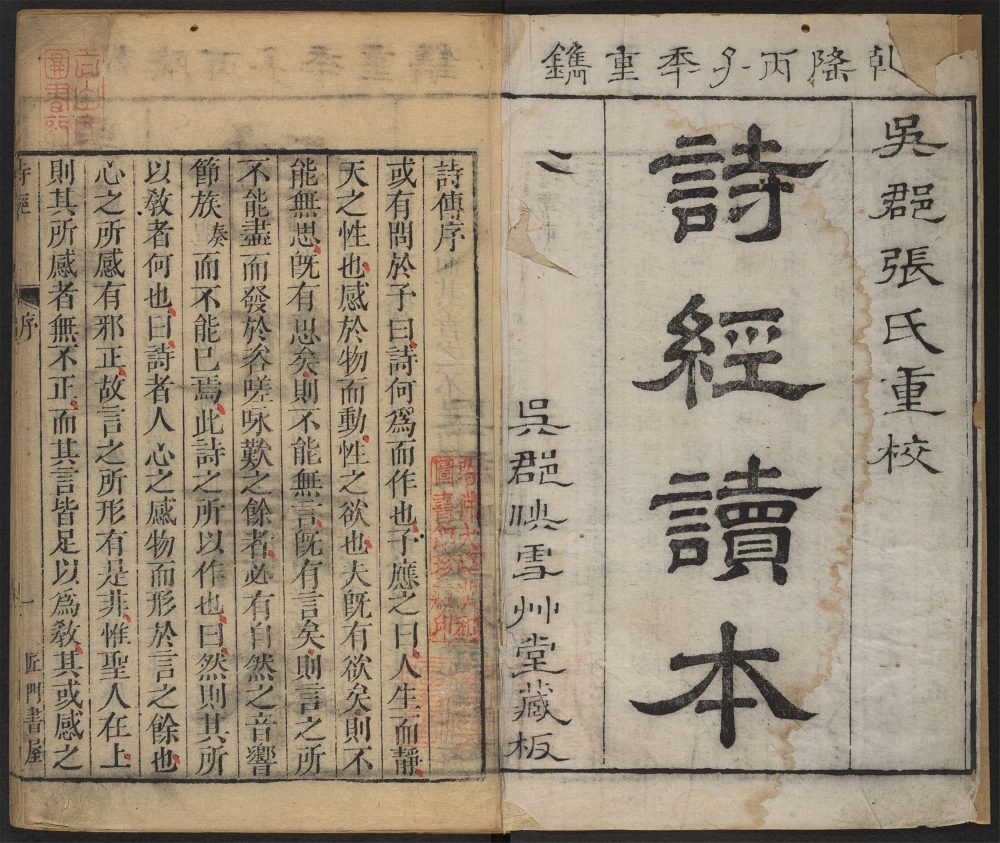 乾隆丙子秊重鐫
吳郡張氏重校
詩經讀本
吳郡映雪艸堂藏板
詩傳序
或有問於予曰詩何爲而作也予應之曰人生而靜
天之性也感於物而動性之欲也夫旣有欲矣則不
能無思旣有思矣則不能無言旣有言矣則言之所
不能盡而發於咨嗟咏歎之餘者必有自然之音響
節族奏而不能已焉此詩之所以作也曰然則其所
以敎者何也曰詩者人心之感物而形於言之餘也
心之所感有邪正故言之所形有是非惟聖人在上
則其所感者無不正而其言皆足以爲敎其或感之
詩經
序
一
匠門書屋